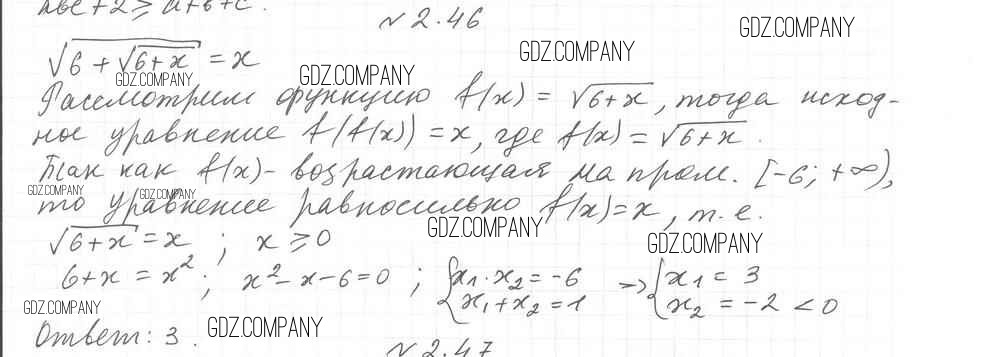 abc + 2 ≥ a + b + c.
N 2.46
GDZ.COMPANY
GDZ.COMPANY
√(6 + √(6+x)) = x
GDZ.COMPANY
GDZ.COMPANY
Рассмотрим функцию f(x) = √(6+x), тогда исход-
ное уравнение f(f(x)) = x, где f(x) = √(6+x).
Так как f(x) - возрастающая на пром. [-6; +∞),
GDZ.COMPANY
GDZ.COMPANY
то уравнение равносильно f(x) = x, т.е.
GDZ.COMPANY
√(6+x) = x ; x ≥ 0
GDZ.COMPANY
6+x = x²; x² - x - 6 = 0 ; { x₁·x₂ = -6 => { x₁ = 3
x₁ + x₂ = 1 x₂ = -2 < 0
GDZ.COMPANY
Ответ: 3.
GDZ.COMPANY
N 2.47